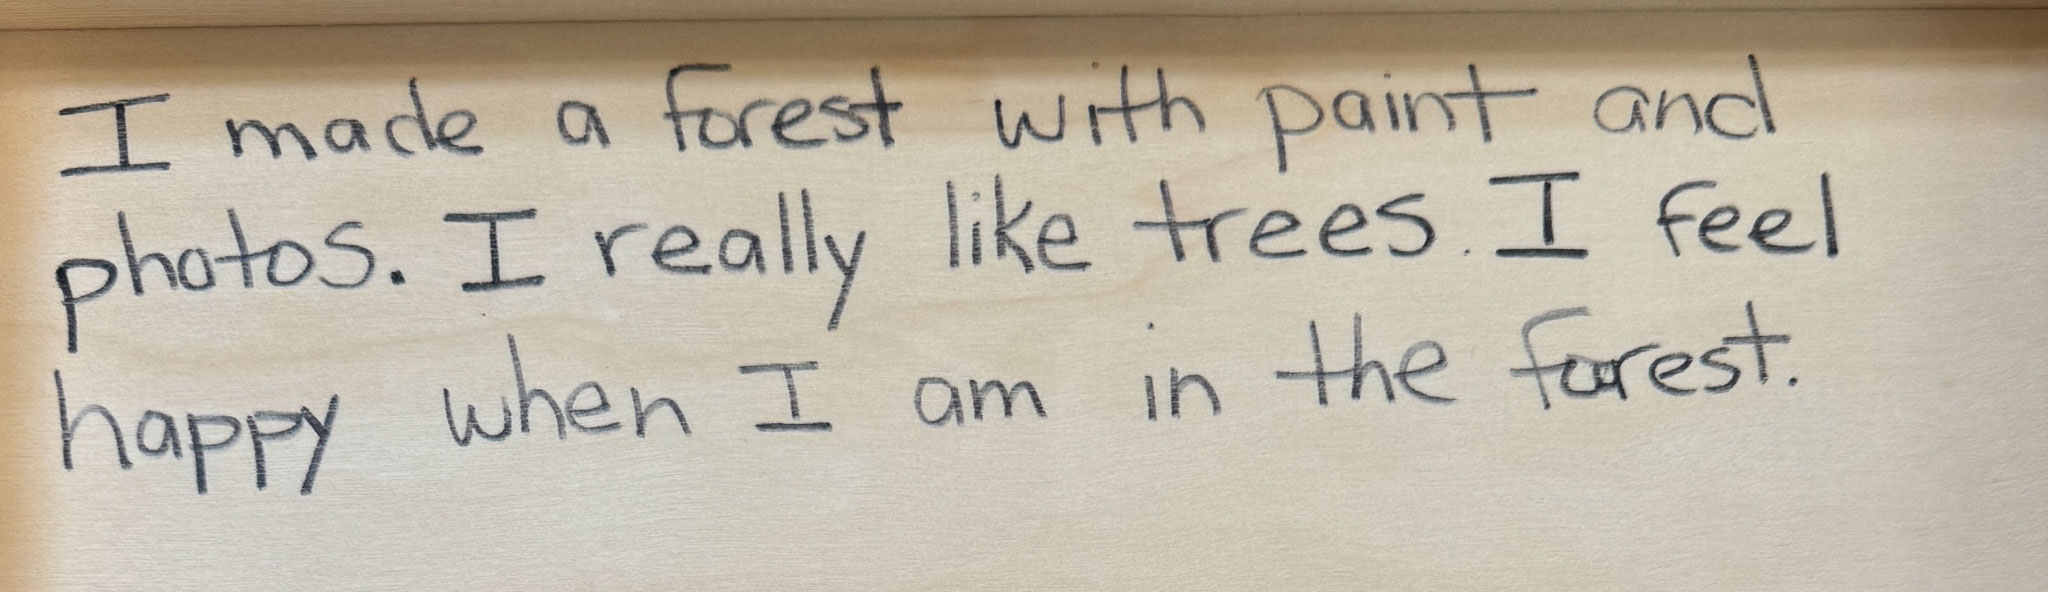 I made a forest with paint and
photos. I really like trees. I feel
happy when I am in the forest.